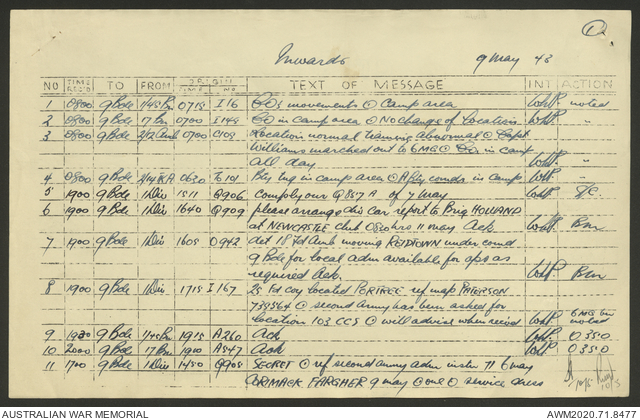 ①
Inwards 9 May 43
NO TIME REC'D TO FROM ORIGIN TIME NO TEXT OF MESSAGE INT ACTION
1 0800 9 Bde 1/45 Bn 0715 I 16 COs movements ⊙ Camp area WHP. noted
2 0800 9 Bde 17 Bn 0700 I 149 CO in camp area ⊙ No change of location WHP. "
3 0800 9 Bde 2/2 Amb 0700 C109 Location normal training abnormal ⊙ Capt
Williams marched out to 6 MG ⊙ COs in camp
all day. WHP. "
4 0800 9 Bde 0630 To 101 Bty trg in camp area ⊙ Arty comds in camp WHP. "
5 1900 9 Bde 1 Div 1511 Q906 Comply our Q857 A of 7 May WHP.
6 1900 9 Bde 1 Div 1640 Q909 please arrange div car report to Brig HOLLAND
at NEWCASTLE club 0800 hrs 11 May Ack WHP. Bm
7 1900 9 Bde 1 Div 1605 O942 det 18 Fd Amb moving under comd
9 Bde for local adm available for ops as
required Ack. WHP. Bm
8 1900 9 Bde 1 Div 1715 I 167 25 Fd coy located PORTREE ref map PATERSON
739564 ⊙ second Army has been asked for
location 103 CCS ⊙ will advise when recvd WHP. 6 MG Bn noted
9 1920 9 Bde 1/45 Bn 1915 A260 Ack WHP. O350
10 2000 9 Bde 17 Bn 1900 A547 Ack WHP. O350
11 1700 9 Bde 1 Div 1450 Q905 SECRET ⊙ ref second army adm instr 11 6 may
CORMACK FARGHER 9 may ⊙ one ⊙ service dress
AUSTRALIAN WAR MEMORIAL AWM2020.71.8477